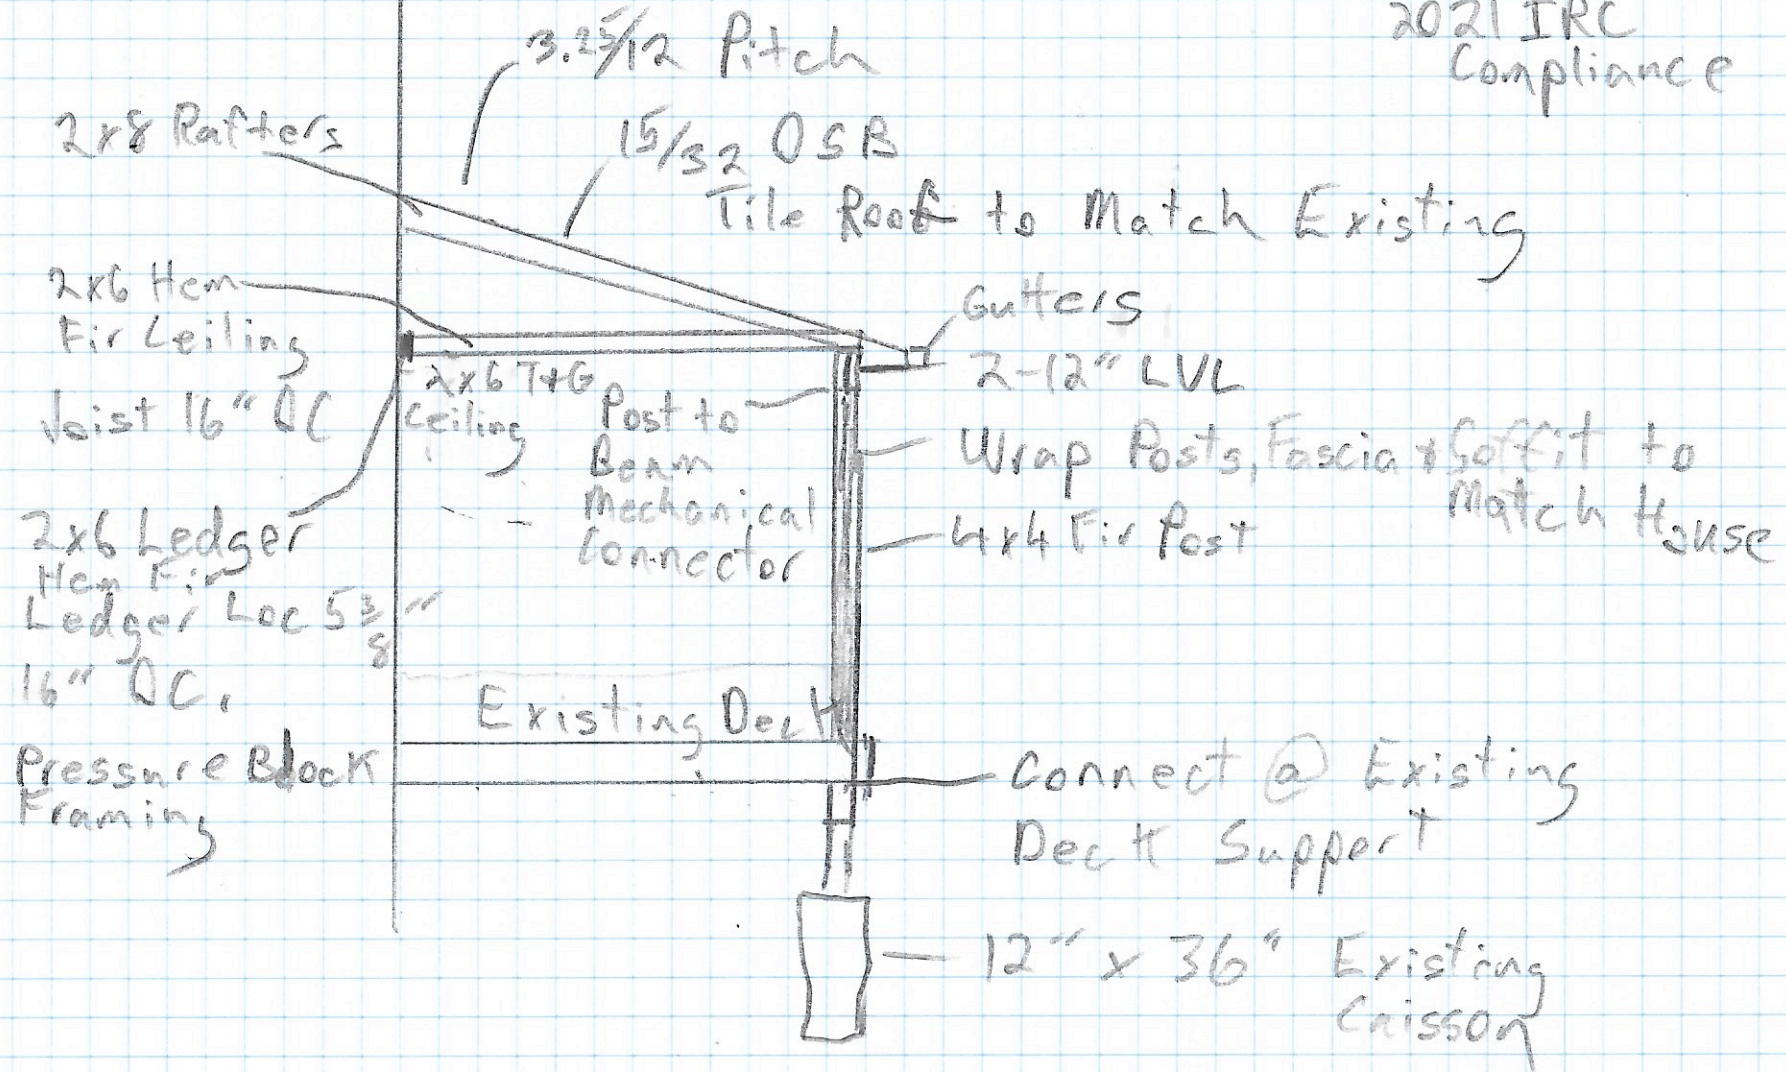 2021 IRC
Compliance
3.25/12 Pitch
2x8 Rafters
15/32 OSB
Tile Roof to Match Existing
2x6 Hem
Fir Ceiling
Joist 16" OC
Gutters
2-12" LVL
2x6 T+G
Ceiling
Post to
Beam
Mechanical
Connector
Wrap Posts, Fascia & Soffit to
Match House
4x4 Fir Post
2x6 Ledger
Hem Fir
Ledger Loc 5 3/8"
16" OC.
Pressure Block
Framing
Existing Deck
Connect @ Existing
Deck Support
12" x 36" Existing
Caisson